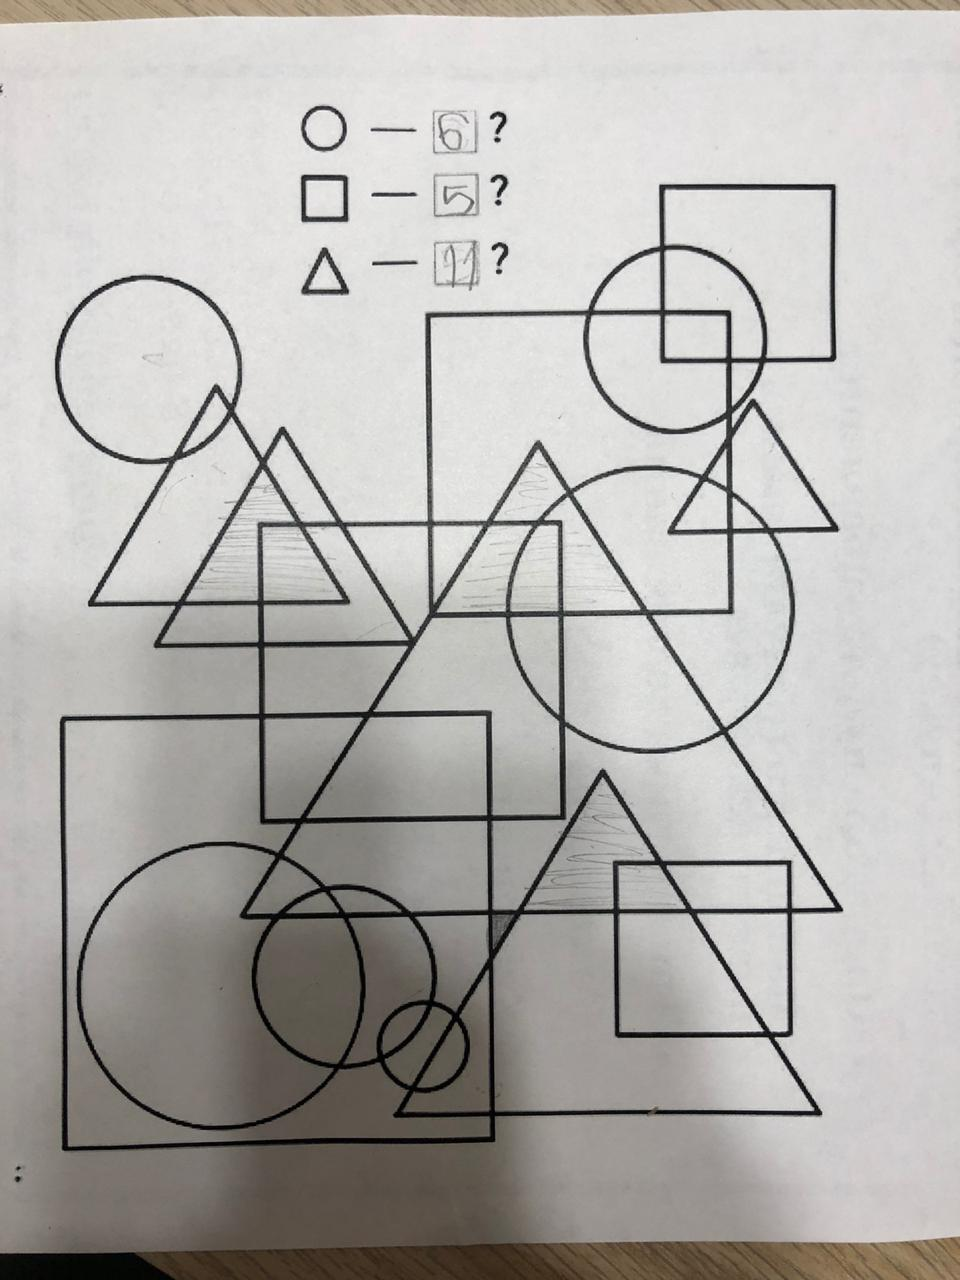 — 6 ?
— 5 ?
— 11 ?